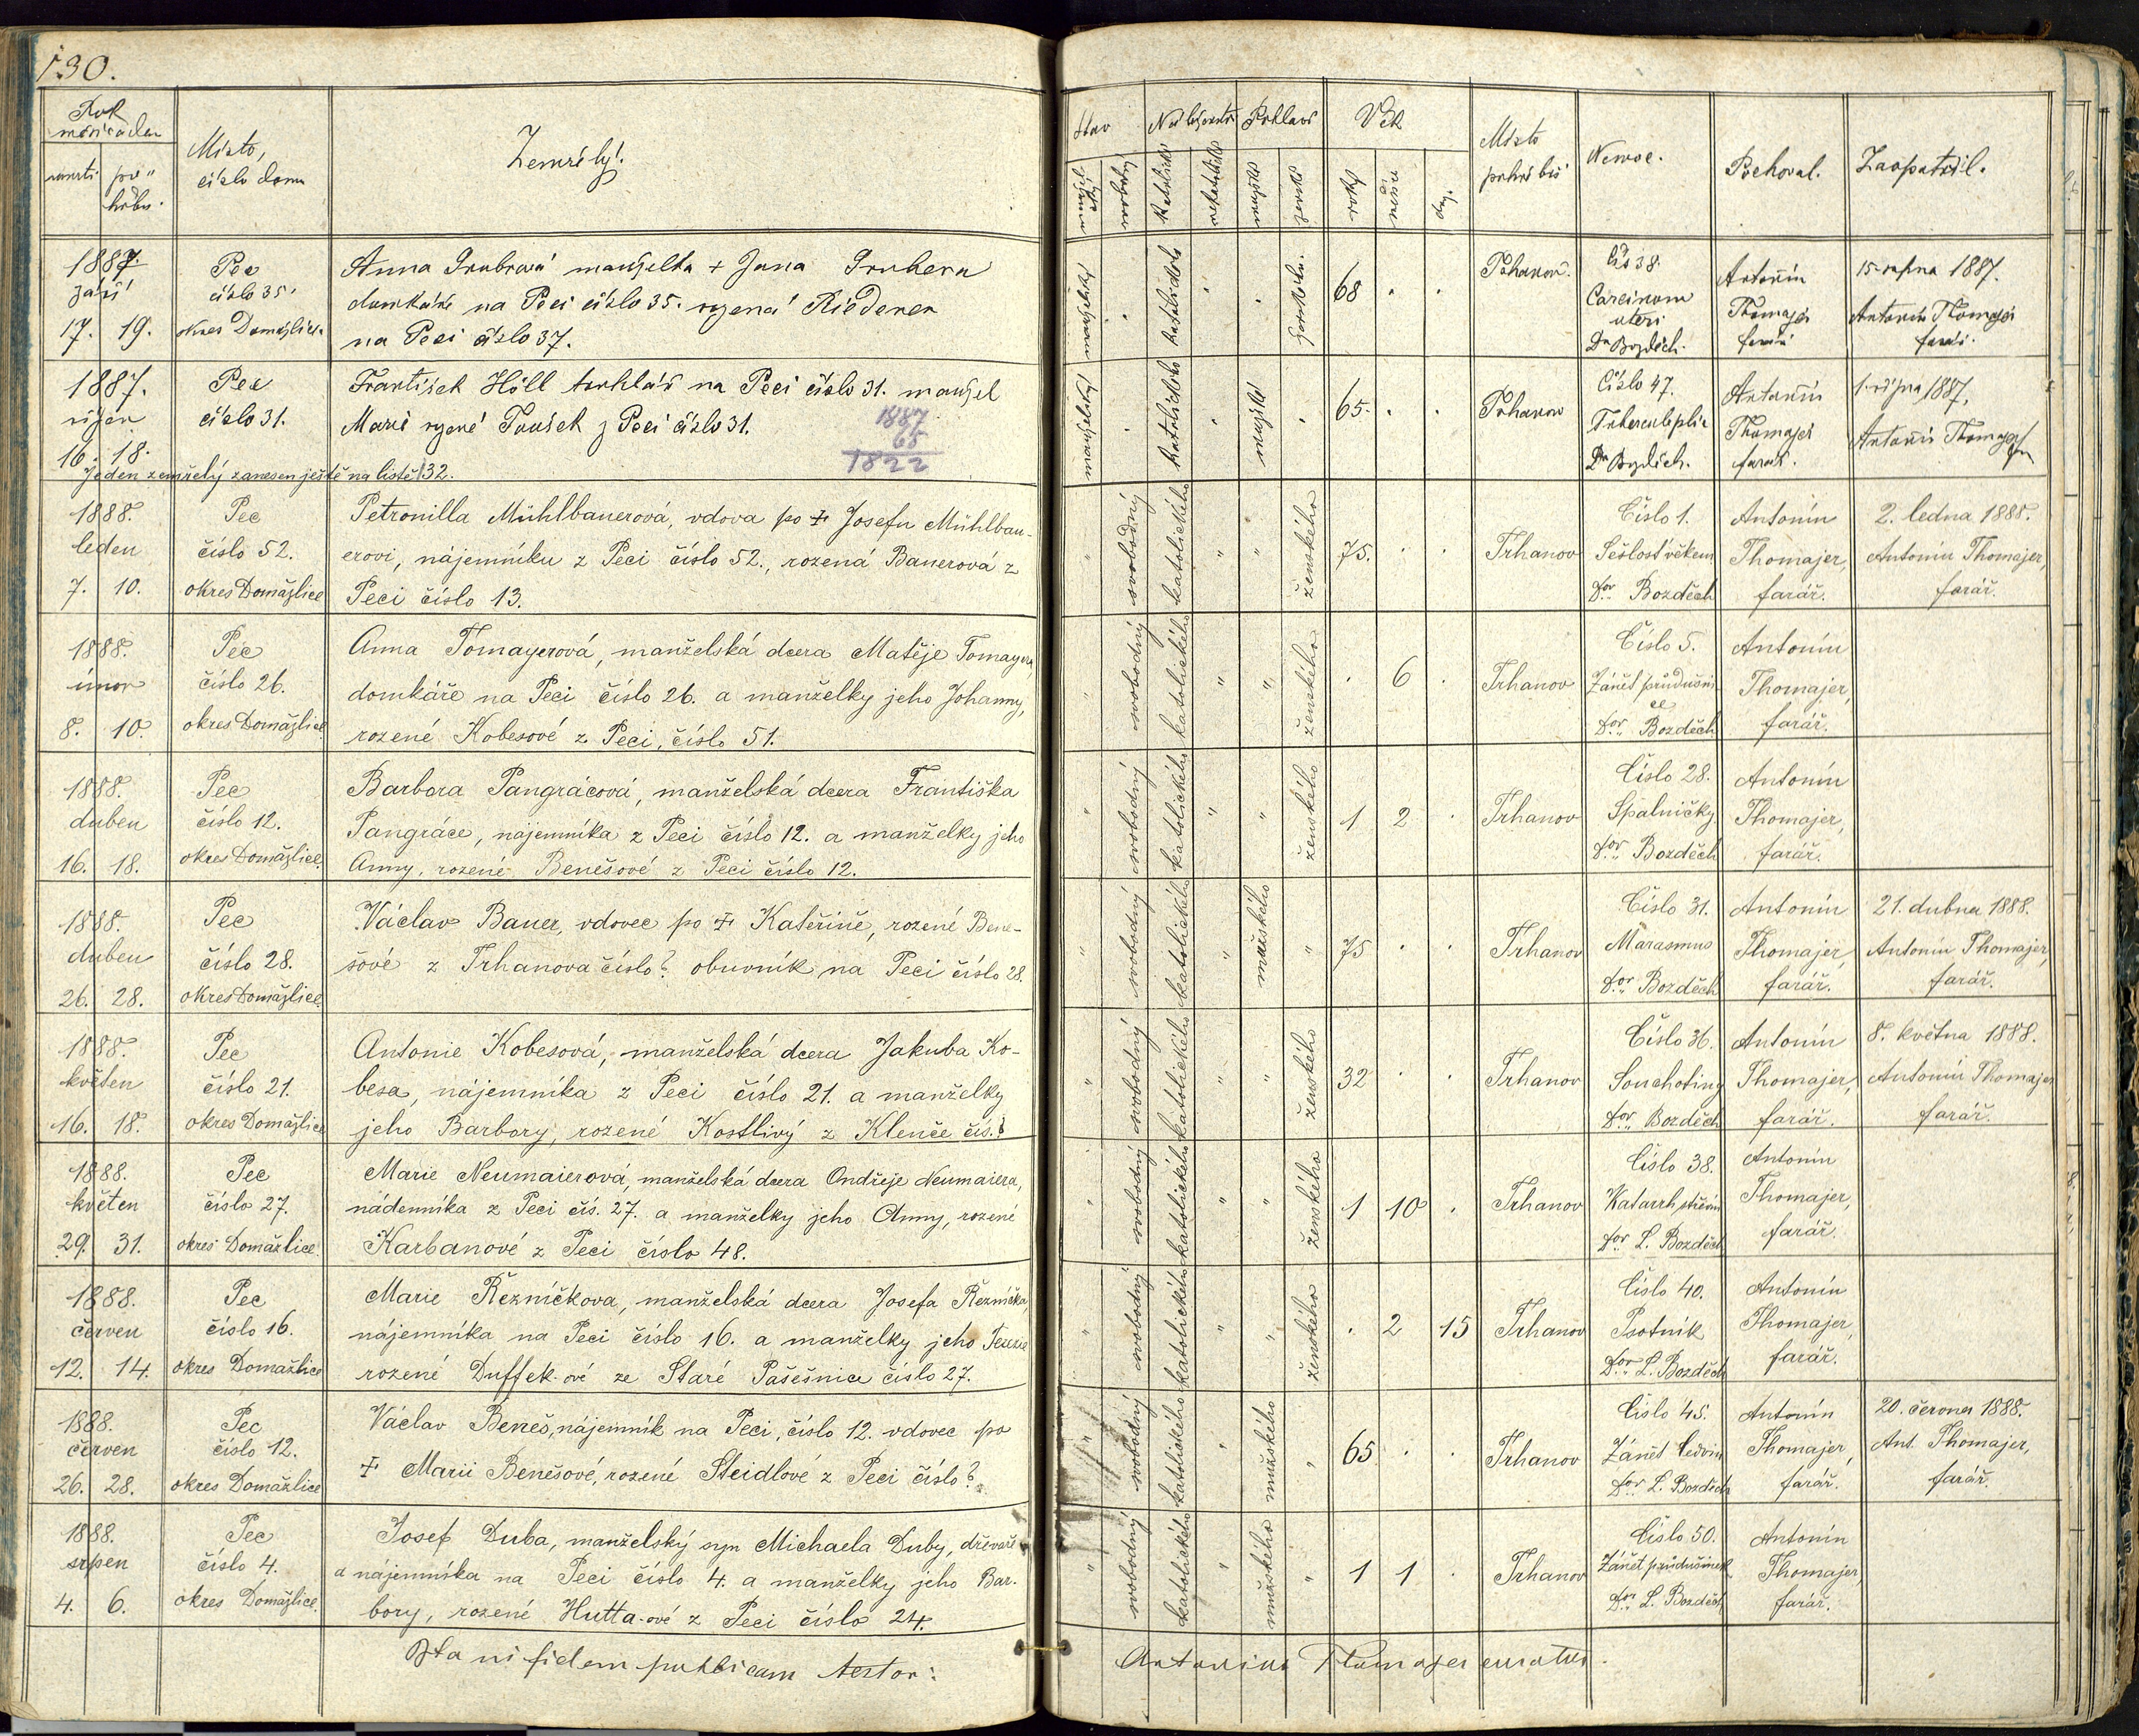 130.
Rok
měsíc a den
úmrtí po-
hřbu.
Místo,
číslo domu
Zemřelý.
Stav
Náboženství
Pohlaví
Věk
Místo
pohřbu
Nemoc.
Pochoval.
Zaopatřil.
svobodný
katolické
nekatolické
mužské
ženské
roky
měsíce
dny.
1887.
září
17. 19.
Pec
číslo 35.
okres Domažlice
Anna Grubrová manželka + Jana Grubera
domkáře na Peci číslo 35. rozená Riederer
na Peci číslo 37.
manželský
katolického
68
Trhanov.
čís 38.
Carcinom
uteri
Dr Bozděch.
Antonín
Thomajer
farář
15. srpna 1887.
Antonín Thomajer
farář.
1887.
říjen
16. 18.
Pec
číslo 31.
František Höll truhlář na Peci číslo 31. manžel
Marie rozené Toušek z Peci číslo 31.
1887
65
1822
Jeden zemřelý zanesen ještě na listě 132.
manželský
katolického
mužské
65.
Trhanov
Číslo 47.
Dr Bozděch.
Antonín
Thomajer
farář.
1. října 1887.
Antonín Thomajer
1888.
leden
7. 10.
Pec
číslo 52.
okres Domažlice
Petronilla Mühlbauerová, vdova po + Josefu Mühlbau-
erovi, nájemníku z Peci číslo 52., rozená Bauerová z
Peci číslo 13.
svobodný
katolického
ženského
75.
Trhanov
Číslo 1.
Sešlost věkem
Dor. Bozděch
Antonín
Thomajer,
farář.
2. ledna 1888.
Antonín Thomajer,
farář.
1888.
únor
8. 10.
Pec
číslo 26.
okres Domažlice
Anna Tomayerová, manželská dcera Matěje Tomayera,
domkáře na Peci číslo 26. a manželky jeho Johanny,
rozené Kobesové z Peci, číslo 51.
svobodný
katolického
ženského
6
Trhanov
Číslo 5.
Zánět průdušni
ce
Dor. Bozděch
Antonín
Thomajer,
farář.
1888.
duben
16. 18.
Pec
číslo 12.
okres Domažlice.
Barbora Pangrácová, manželská dcera Františka
Pangráce, nájemníka z Peci číslo 12. a manželky jeho
Anny, rozené Benešové z Peci číslo 12.
svobodný
katolického
ženského
1 2
Trhanov
Číslo 28.
Spalničky
Dor. Bozděch
Antonín
Thomajer,
farář.
1888.
duben
26. 28.
Pec
číslo 28.
okres Domažlice.
Václav Bauer, vdovec po + Kateřině, rozené Bene-
šové z Trhanova číslo? obuvník na Peci číslo 28.
svobodný
katolického
mužského
75
Trhanov
Číslo 31.
Marasmus
Dor. Bozděch
Antonín
Thomajer,
farář.
21. dubna 1888.
Antonín Thomajer,
farář.
1888.
květen
16. 18.
Pec
číslo 21.
okres Domažlice
Antonie Kobesová, manželská dcera Jakuba Ko-
besa, nájemníka z Peci číslo 21. a manželky
jeho Barbory, rozené Kostlivý z Klenče čís.?
svobodný
katolického
ženského
32
Trhanov
Číslo 36.
Souchotiny
Dor. Bozděch
Antonín
Thomajer,
farář.
8. května 1888.
Antonín Thomajer
farář.
1888.
květen
29. 31.
Pec
číslo 27.
okres Domažlice.
Marie Neumaierová, manželská dcera Ondřeje Neumaiera,
nádenníka z Peci čís. 27. a manželky jeho Anny, rozené
Karbanové z Peci číslo 48.
svobodný
katolického
ženského
1 10
Trhanov
Číslo 38.
Katarrh střevní
Dor. L. Bozděch
Antonín
Thomajer,
farář.
1888.
červen
12. 14.
Pec
číslo 16.
okres Domažlice
Marie Řezníčkova, manželská dcera Josefa Řezníčka,
nájemníka na Peci číslo 16. a manželky jeho Terezie
rozené Duffek-ové ze Staré Pasešnice číslo 27.
svobodný
katolického
ženského
2 15
Trhanov
Číslo 40.
Psotník
Dor. L. Bozděch
Antonín
Thomajer,
farář.
1888.
červen
26. 28.
Pec
číslo 12.
okres Domažlice
Václav Beneš, nájemník na Peci, číslo 12. vdovec po
+ Marii Benešové, rozené Steidlové z Peci číslo?
svobodný
katolického
mužského
65
Trhanov
Číslo 45.
Zánět ledvin
Dor. L. Bozděch
Antonín
Thomajer,
farář.
20. června 1888.
Ant. Thomajer,
farář.
1888.
srpen
4. 6.
Pec
číslo 4.
okres Domažlice.
Josef Duba, manželský syn Michaela Duby, dřevaře
a nájemníka na Peci číslo 4. a manželky jeho Bar-
bory, rozené Hutta-ové z Peci číslo 24.
svobodný
katolického
mužského
1 1
Trhanov
Číslo 50.
Zánět průdušinek
Dor. L. Bozděch
Antonín
Thomajer,
farář.
Ita in fidem publicam testor:
Antonius Thomajer curatus.